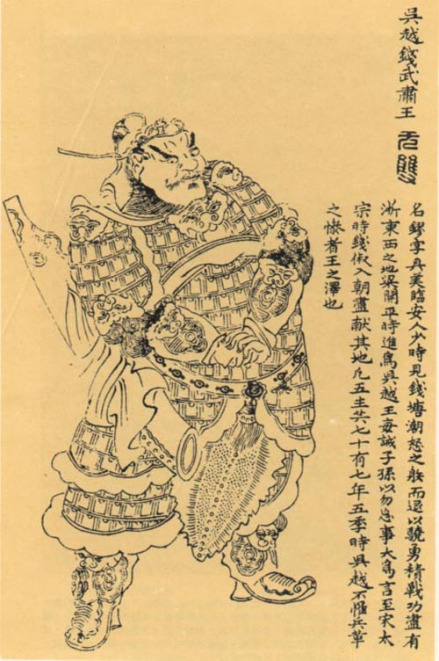 吳越錢武肅王 无雙
名鏐字具美臨安人少時見錢塘潮怒之䠶而退以驍勇積戰功盡有
浙東西之地梁開平時進爲吳越王每誡子孫以勿忘事大爲言至宋太
宗時錢俶入朝盡獻其地凡五主共七十有七年五季時吳越不罹兵革
之慘者王之澤也